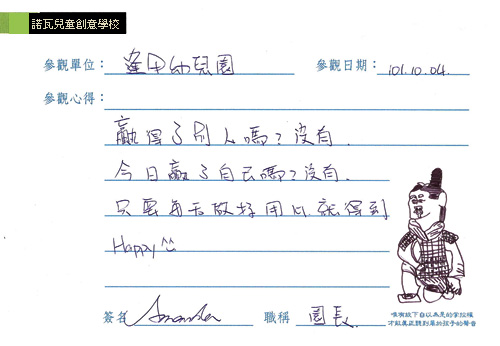 諾瓦兒童創意學校
參觀單位：逢甲幼兒園 參觀日期：101.10.04.
參觀心得：
贏得了別人嗎？沒有.
今日贏了自己嗎？沒有.
只要每天放好用心就得到
Happy ^^
簽名 Amanda 職稱 園長
唯有放下自以為是的掌控權
才能真正聽到屬於孩子的聲音